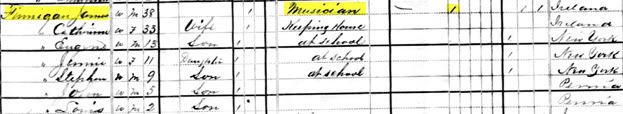 Finnegan James W M 38 1 Musician 1 Ireland
" Catherine W F 33 Wife 1 Keeping House Ireland
" Eugene W M 13 Son 1 at school 1 New York
" Jennie W F 11 Daughter 1 at school 1 New York
" Stephen W M 9 Son 1 at school 1 New York
" John W M 5 Son 1 Penna
" Louis W M 2 Son 1 Penna